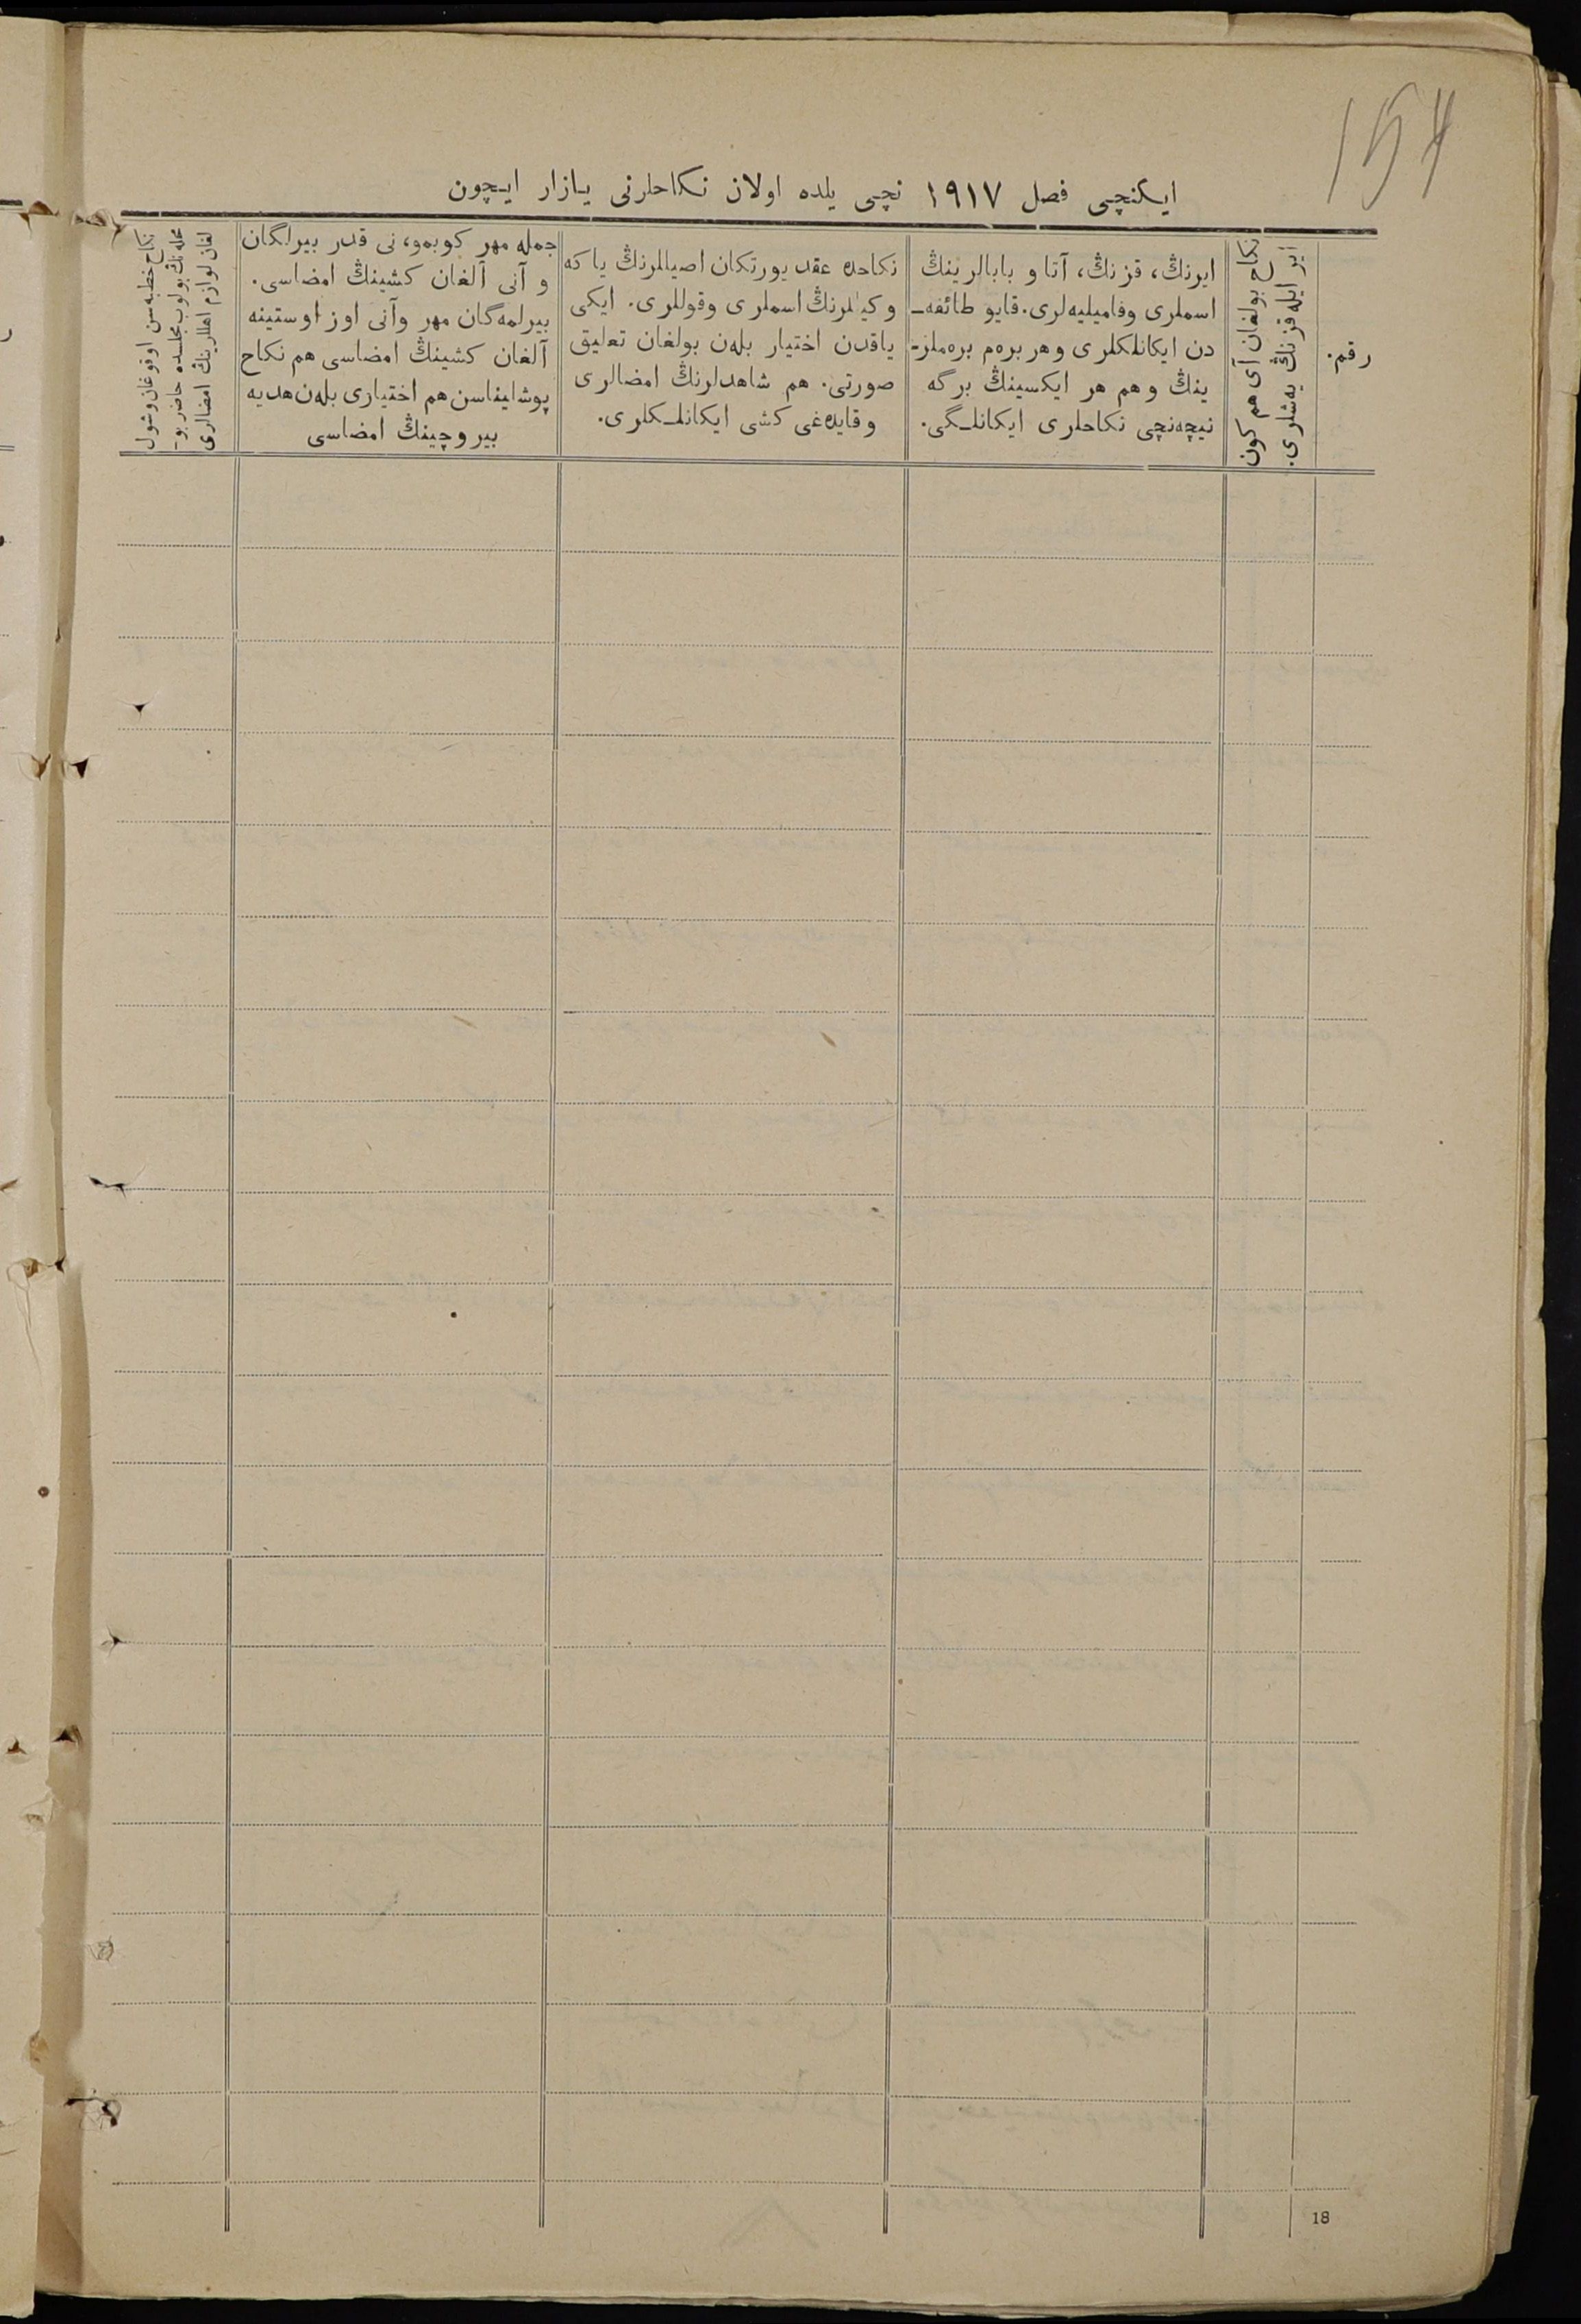 154
ایکنچی فصل ۱۹۱۷ نچی یلده اولان نکاحلرنی یازار ایچون
رقم.
ایر ایله قزنڭ یه‌شلری.
نکاح بولغان آی هم کون
ایرنڭ، قزنڭ، آتا و بابالرینڭ
اسملری وفامیلیه‌لری. قایو طائفه‌ـ
دن ایکانلکلری و هر بره‌م بره‌ملزـ
ینڭ و هم هر ایکسینڭ برگه
نیچه‌نچی نکاحلری ایکانلـگی.
نکاحده عقد یورتکان اصیاللرنڭ یا که
وکیللرنڭ اسملری وقوللری. ایکی
یاقدن اختیار بله‌ن بولغان تعلیق
صورتی. هم شاهدلرنڭ امضالری
وقایده‌غی کشی ایکانلـکلری.
جمله مهر کوبمو، نی قدر بیرلگان
و آنی آلغان کشینڭ امضاسی.
بیرلمه‌گان مهر وآنی اوز اوستینه
آلغان کشینڭ امضاسی هم نکاح
پوشلیناسن هم اختیاری بله‌ن هدیه
بیروچینڭ امضاسی
نکاح خطبه‌سن اوقوغان وشول
محله‌نڭ بولوب مجلسده حاضر بوـ
لغان لوازم اهللرینڭ امضالری
18